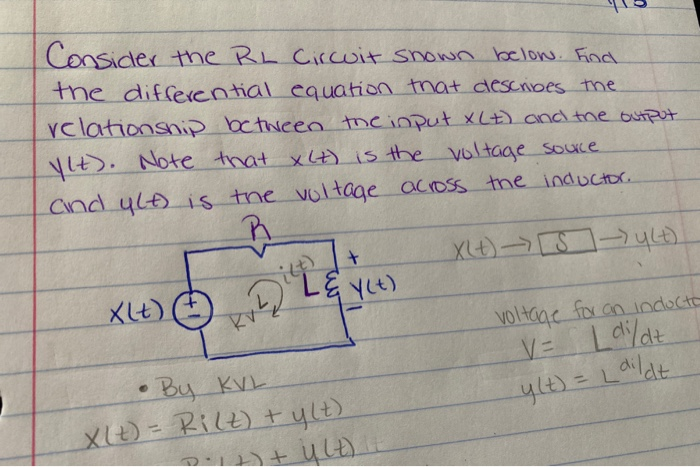 Consider the RL Circuit shown below. Find
the differential equation that describes the
relationship between the input x(t) and the output
y(t). Note that x(t) is the voltage source
and y(t) is the voltage across the inductor.
R
x(t) → S → y(t)
i(t)
+
L y(t)
-
x(t) +
-
KVL
voltage for an inducto
V = L di/dt
y(t) = L di/dt
• By KVL
x(t) = Ri(t) + y(t)
+ y(t)